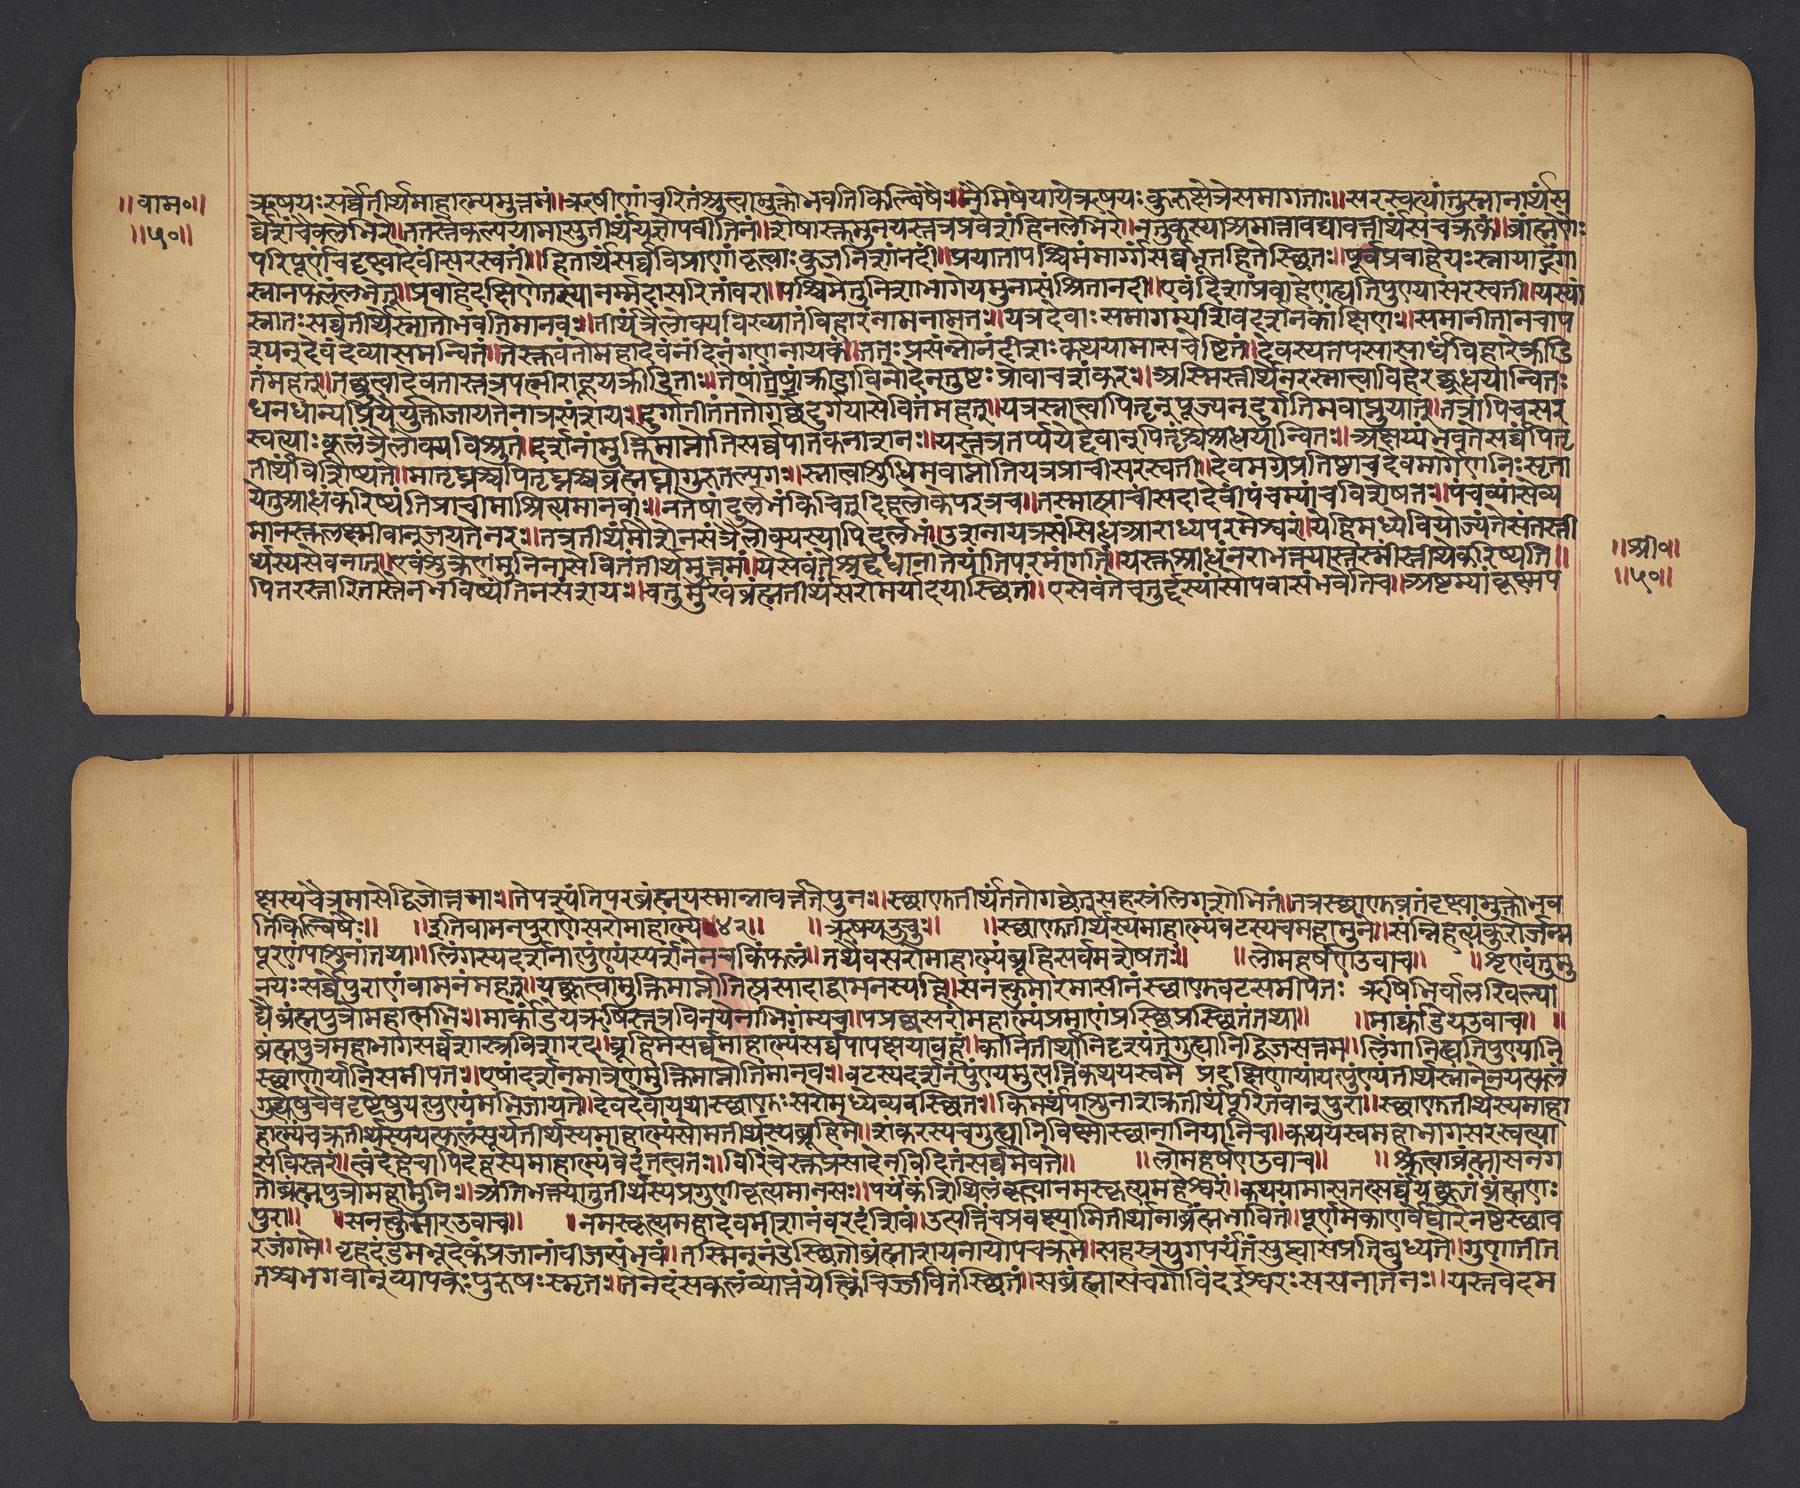 ॥वाम०॥
॥५०॥
ऋषयः सर्वे तीर्थमाहात्म्यमुत्तमं॥ ऋषीणां चरितं श्रुत्वा मुक्तो भवति किल्बिषैः॥ नैमिषेया ये ऋषयः कुरुक्षेत्रे समागताः॥ सरस्वत्यां तु स्नानार्थं स
र्वे लेभिरे॥ ततस्ते कल्पयामासुस्तीर्थं यज्ञोपवीतिनं॥ शेषास्तु मुनयस्तत्र प्रवेशं हि न लेभिरे॥
परिपूर्णं च दृष्ट्वा देवीं सरस्वतीं॥ हितार्थं सर्वविप्राणां कृत्वा कुंजानि सा नदी॥ प्रयाता पश्चिमं मार्गं सर्वभूतहिते स्थितः॥ पूर्वप्रवाहे यः स्नाया गंगा
स्नानफलं लभेत्॥ प्रवाहे दक्षिणे तस्या नर्म्मदा सरितां वरा॥ पश्चिमे तु दिशाभागे यमुना संश्रिता नदी॥ एवं दिशां प्रवाहेण ह्यतिपुण्या सरस्वती॥ यस्यां
स्नातः सर्वतीर्थस्नातो भवति मानवः॥ तीर्थं त्रैलोक्यविख्यातं विहारं नाम नामतः॥ यत्र देवाः समागम्य शिवदर्शनकांक्षिणः॥ समानीता न चाप
श्यन् देवं देव्या समन्वितं॥ ते स्तुवंतो महादेवं नंदिनं गणनायकं॥ ततः प्रसन्नो नंदीशः कथयामास चेष्टितं॥ देवस्य तपसा सार्धं विहारे क्रीडि
तं महत्॥ तच्छ्रुत्वा देवतास्तत्र पत्नीराहूय क्रीडिताः॥ तेषां क्रीडाविनोदेन तुष्टः प्रोवाच शंकरः॥ अस्मिंस्तीर्थे नरः स्नात्वा विहारे श्रद्धयान्वितः
धनधान्यप्रियैर्युक्तो जायते नात्र संशयः॥ दुर्गातीर्थं ततो गच्छेद्दुर्गया सेवितं महत्॥ यत्र स्नात्वा पितॄन् पूज्य न दुर्गतिमवाप्नुयात्॥ तत्रापि च सर
स्वत्याः कूलं त्रैलोक्यविश्रुतं॥ दर्शनान्मुक्तिमाप्नोति सर्वपातकनाशनः॥ यस्तत्र तर्प्पयेद्देवान् पितॄंश्च श्रद्धयान्वितः॥ अक्षय्यं भवते सर्वं पितृ
तीर्थं विशिष्यते॥ मातृघ्नश्च पितृघ्नश्च ब्रह्मघ्नो गुरुतल्पगः॥ स्नात्वा शुद्धिमवाप्नोति यत्र प्राची सरस्वती॥ देवमार्गप्रतिष्ठा च देवमार्गेण निःसृता
ये तु श्राद्धं करिष्यंति प्राचीमाश्रित्य मानवाः॥ न तेषां दुर्लभं किंचिदिहलोके परत्र च॥ तस्मात्प्राची सदा देवी पंचम्यां च विशेषतः॥ पंचम्यां सेव्य
मानस्तु लक्ष्मीवान् जायते नरः॥ तत्र तीर्थमौशनसं त्रैलोक्यस्यापि दुर्लभं॥ उशना यत्र संसिद्ध आराध्य परमेश्वरं॥
र्थस्य सेवनात्॥ एवं शुक्रेण मुनिना सेवितं तीर्थमुत्तमं॥ ये सेवंते श्रद्दधानास्ते यांति परमां गतिं॥ यस्तु श्राद्धं नरो भक्त्या तस्मिंस्तीर्थे करिष्यति॥
पितरस्तारितास्तेन भविष्यंति न संशयः॥ चतुर्मुखं ब्रह्मतीर्थं सरोमर्यादया स्थितं॥ ये सेवंते चतुर्दश्यां सोपवासं भवंति च॥ अष्टम्यां कृष्णप
॥श्री०॥
॥५०॥
क्षस्य चैत्रमासे द्विजोत्तमाः॥ ते पश्यंति परं ब्रह्म यस्मान्नावर्त्तते पुनः॥ स्थाणुतीर्थं ततो गच्छेत् सहस्रलिंगशोभितं॥ तत्र स्थाणुवटं दृष्ट्वा मुक्तो भव
ति किल्बिषैः॥ ॥इति वामनपुराणे सरोमाहात्म्ये॥४२॥ ॥ऋषय ऊचुः॥ ॥स्थाणुतीर्थस्य माहात्म्यं वटस्य च महामुने॥ सन्निहत्य कुरोर्जन्म
पूरणं पांशुना तथा॥ लिंगस्य दर्शनात्पुण्यं स्पर्शनेन च किं फलं॥ तथैव सरोमाहात्म्यं ब्रूहि सर्वमशेषतः॥ ॥लोमहर्षण उवाच॥ ॥शृण्वंतु मु
नयः सर्वे पुराणं वामनं महत्॥ यच्छ्रुत्वा मुक्तिमाप्नोति प्रसादाद्वामनस्य हि॥ सनत्कुमारमासीनं स्थाणुवटसमीपतः ऋषिभिर्वालखिल्या
द्यै ब्रह्मपुत्रो महात्मभिः॥ मार्कंडेय ऋषिस्तत्र विनयेनाभिगम्य च॥ पप्रच्छ सरोमहात्म्यं प्रमाणं प्रस्थितं तथा॥ ॥मार्कंडेय उवाच॥ ॥
ब्रह्मपुत्र महाभाग सर्वशास्त्रविशारद॥ ब्रूहि मे सर्वमाहात्म्यं सर्वपापक्षयावहं॥ कानि तीर्थानि दृश्यंते गुह्यानि द्विजसत्तम॥ लिंगानि ह्यतिपुण्यानि
स्थाणोर्यानि समीपतः॥ एषां दर्शनमात्रेण मुक्तिमाप्नोति मानवः॥ वटस्य दर्शनं पुण्यमुत्पत्तिं कथयस्व मे प्रदक्षिणायां यत्पुण्यं तीर्थस्नानेन यत्फलं
गुह्येषु चैव दृष्टेषु यत्पुण्यमभिजायते॥ देवदेवो यथा स्थाणुः सरोमध्ये व्यवस्थितः॥ किमर्थं पांशुना शक्रस्तीर्थं पूरितवान् पुरा॥ स्थाणुतीर्थस्य माहा
हात्म्यं चक्रतीर्थस्य यत्फलं सूर्यतीर्थस्य माहात्म्यं सोमतीर्थस्य ब्रूहि मे॥ शंकरस्य च गुह्यानि विष्णोः स्थानानि यानि च॥ कथयस्व महाभाग सरस्वत्या
सविस्तरं॥ त्वं देहे चापि देहस्य माहात्म्यं वेद तत्वतः॥ विरिंचेस्तु प्रसादेन विदितं सर्वमेव ते॥ ॥लोमहर्षण उवाच॥ ॥
ब्रह्मपुत्रो महामुनिः॥ अतिभक्त्या तु तीर्थस्य प्रगुणीकृत्य मानसः॥ पर्यंकं शिथिलं कृत्वा नमस्कृत्य महेश्वरं॥ कथयामास तत्सर्वं यच्छ्रुतं ब्रह्मणः
पुरा॥ ॥सनत्कुमार उवाच॥ ॥नमस्कृत्य महादेवमीशानं वरदं शिवं॥ उत्पत्तिं च प्रवक्ष्यामि तीर्थानां ब्रह्मभावितं॥ पूर्णमेकार्णवे घोरे नष्टे स्थाव
रजंगमे॥ बृहदंडमभूदेकं प्रजानां बीजसंभवं॥ तस्मिन्नंडे स्थितो ब्रह्मा शयनायोपचक्रमे॥ सहस्रयुगपर्यंतं सुप्त्वा स प्रतिबुध्यते॥
तश्च भगवान् व्यापकः पुरुषः स्मृतः॥ तेनेदं सकलं व्याप्तं यत्किंचिज्जीवितं स्थितं॥ स ब्रह्मा स च गोविंद ईश्वरः स सनातनः॥ यस्तं वेद म